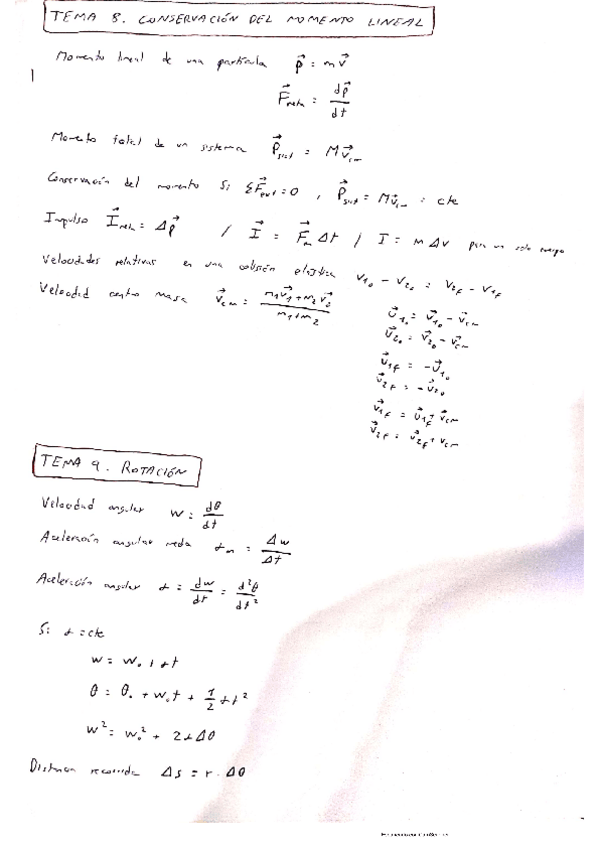 TEMA 8. CONSERVACIÓN DEL MOMENTO LINEAL
Momento lineal de una partícula p⃗ = m v⃗
F⃗neta = dp⃗/dt
Momento total de un sistema P⃗sist = M v⃗cm
Conservación del momento Si ΣF⃗ext = 0 , P⃗sist = M v⃗cm = cte
Impulso I⃗neta = Δp⃗ / I⃗ = F⃗m Δt / I = m Δv para un solo cuerpo
Velocidades relativas en una colisión elástica v1o - v2o = v2f - v1f
Velocidad centro masa v⃗cm = (m1v⃗1 + m2v⃗2)/(m1 + m2)
u⃗1o = v⃗1o - v⃗cm
u⃗2o = v⃗2o - v⃗cm
u⃗1f = -u⃗1o
u⃗2f = -u⃗2o
v⃗1f = u⃗1f + v⃗cm
v⃗2f = u⃗2f + v⃗cm
TEMA 9. ROTACIÓN
Velocidad angular w = dθ/dt
Aceleración angular media αm = Δw/Δt
Aceleración angular α = dw/dt = d²θ/dt²
Si α = cte
w = wo + αt
θ = θo + wot + 1/2 αt²
w² = wo² + 2αΔθ
Distancia recorrida Δs = r·Δθ